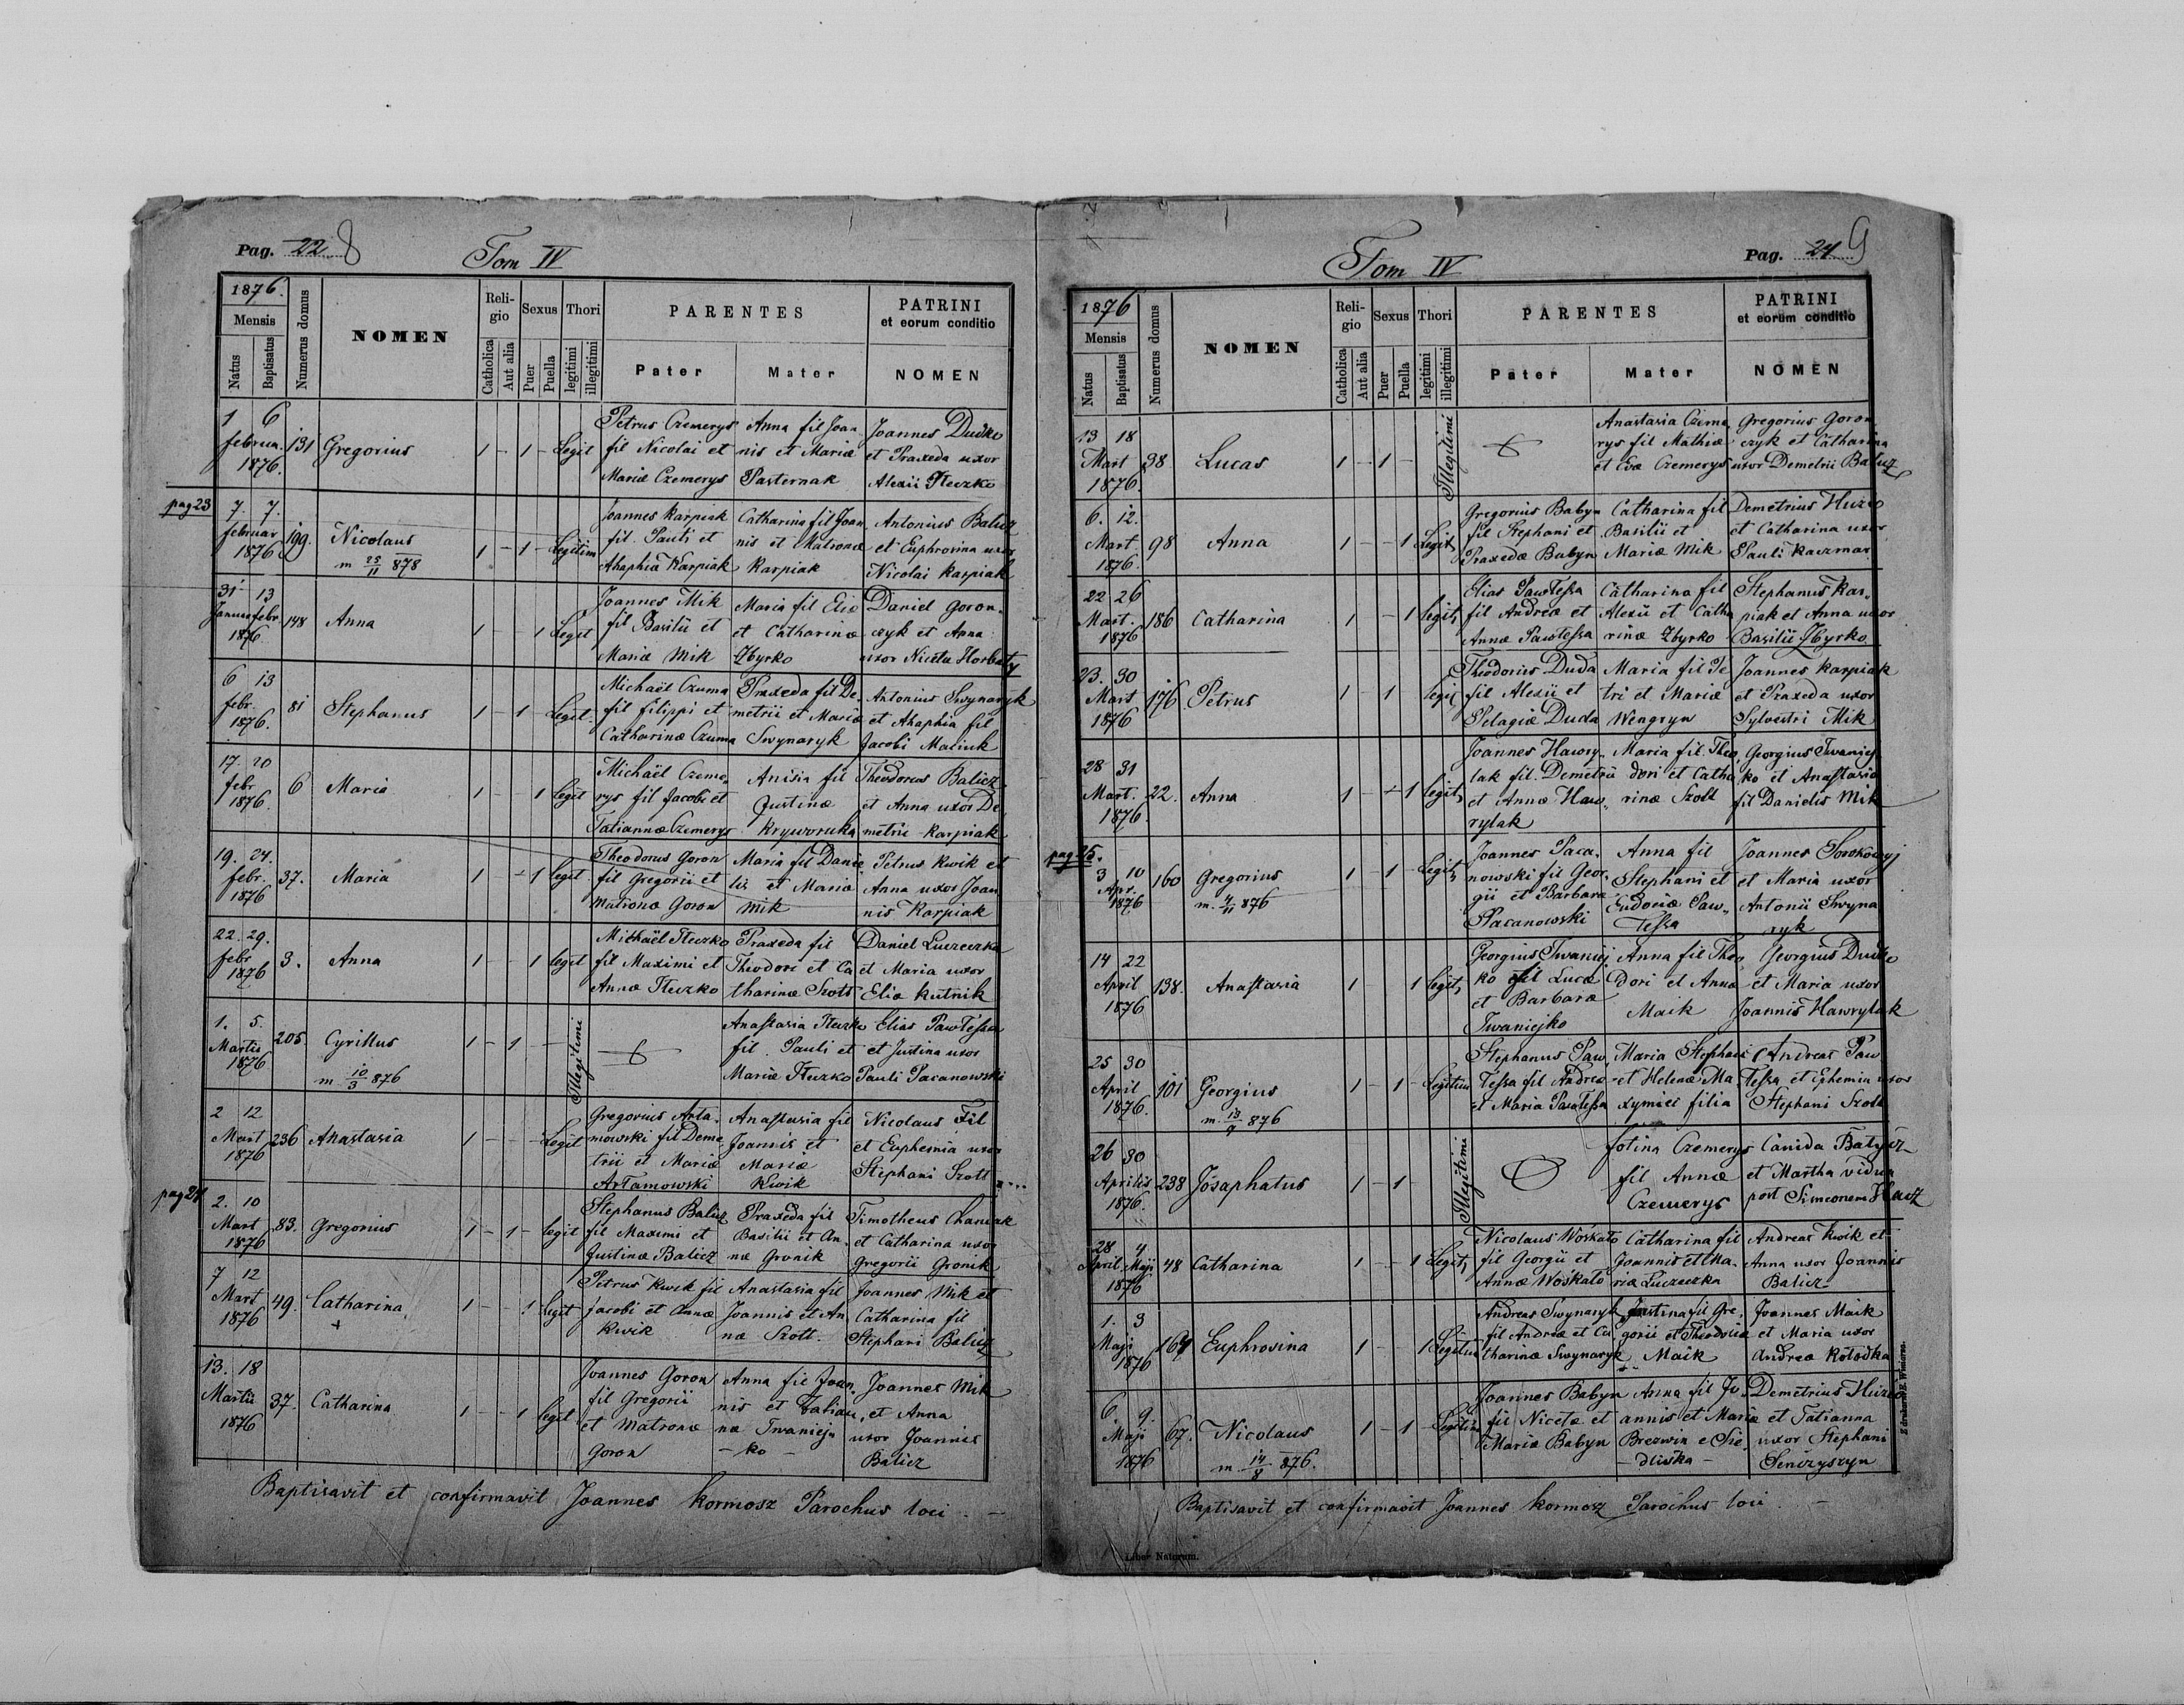 Pag. 22 8
Tom IV
1876.
Mensis
Natus
Baptisatus
Numerus domus
NOMEN
Reli-
gio
Catholica
Aut alia
Sexus
Puer
Puella
Thori
legitimi
illegitimi
PARENTES
Pater
Mater
PATRINI
et eorum conditio
NOMEN
1 6
februa.
1876.
131
Gregorius
1 - 1 - Legit
Petrus Czemerys
fil Nicolai et
Mariæ Czemerys
Anna fil Joan
nis et Mariæ
Pasternak
Joannes Dudko
et Praxeda uxor
Alexii Tluczko
pag 23
7. 7.
februar
1876
199.
Nicolaus
m 25/11 878
1 - 1 - Legitim
Joannes Karpiak
fil. Pauli et
Ahaphiæ Karpiak
Catharina fil Joan
nis et Matronæ
Karpiak
Antonius Balicz
et Euphrosina uxor
Nicolai Karpiak
31 13
Januar febr.
1876.
148
Anna
1 - - 1 Legit
Joannes Mik
fil Basilii et
Mariæ Mik
Maria fil Eliæ
et Catharinæ
Zbyrko
Daniel Goron-
czyk et Anna
uxor Nicetæ Horbaty
6 13
febr.
1876.
81
Stephanus
1 - 1 - Legit.
Michaël Czuma
fil filippi et
Catharinæ Czuma
Praxeda fil De-
metrii et Mariæ
Swynaryk
Antonius Swynaryk
et Ahaphia fil
Jacobi Maciuk
17 20
febr
1876.
6
Maria
1 - - 1 Legit
Michaël Czeme-
rys fil Jacobi et
Tatiannæ Czemerys
Anisia fil
Justinæ
Kryworuka
Theodorus Balicz
et Anna uxor De
metrii Karpiak
19. 24.
febr.
1876
37.
Maria
1 - - 1 legit
Theodorus Goron
fil Gregorii et
Matronæ Goron
Maria fil Danie
lis et Mariæ
Mik
Petrus Kwik et
Anna uxor Joan
nis Karpiak
22. 29.
febr
1876
3.
Anna
1 - - 1 legit
Michaël Tluczko
fil Maximi et
Annæ Tluczko
Praxeda fil
Theodori et Ca
tharinæ Szott
Daniel Luczeczka
et Maria uxor
Eliæ Kutnik
1. 5.
Martis
1876
205.
Cyrillus
m 10/3 876
1 - 1 - -
Illegitimi
Anastasia Tluczko
fil. Pauli et
Mariæ Tluczko
Elias Pawlessa
et Justina uxor
Pauli Pacanowski
2 12
Mart
1876
236
Anastasia
1 - - - Legit
Gregorius Arta-
mowski fil Deme
trii et Mariæ
Artamowski
Anastasia fil
Joannis et
Mariæ
Kwik
Nicolaus Fil
et Euphemia uxor
Stephani Szott
pag 24
2. 10
Mart
1876
83.
Gregorius
1 - 1 - legit
Stephanus Balicz
fil Maximi et
Justinæ Balicz
Praxeda fil
Basilii et An-
næ Gronik
Timotheus Chamiak
et Catharina uxor
Gregorii Gronik
7 12
Mart
1876
49.
Catharina
+
1 - - 1 legit
Petrus Kwik fil
Jacobi et Annæ
Kwik
Anastasia fil
Joannis et An
næ Szott.
Joannes Mik et
Catharina fil
Stephani Balicz
13. 18
Martii
1876
37.
Catharina
1 - - 1 legit
Joannes Goron
fil Gregorii
et Matronæ
Goron
Anna fil Joan
nis et Tatian-
næ Iwaniej-
- ko -
Joannes Mik
et Anna
uxor Joannis
Balicz
Baptisavit et confirmavit Joannes Kormosz Parochus loci. -
Tom IV
Pag. 24 9
1876
Mensis
Natus
Baptisatus
Numerus domus
NOMEN
Reli-
gio
Catholica
Aut alia
Sexus
Puer
Puella
Thori
legitimi
illegitimi
PARENTES
Pater
Mater
PATRINI
et eorum conditio
NOMEN
13 18
Mart
1876.
38
Lucas
1 - 1 -
Illegitimi
Anastasia Czeme
rys fil Mathiæ
et Evæ Czemerys
Gregorius Goron
czyk et Catharina
uxor Demetrii Balicz
6. 12.
Mart
1876.
98
Anna
1 - - 1 Legit
Gregorius Babyn
fil Stephani et
Praxedæ Babyn
Catharina fil
Basilii et
Mariæ Mik
Demetrius Huzio
et Catharina uxor
Pauli Kaczmar
22 26
Mart.
1876
186
Catharina
1 - 1 legit
Elias Pawlessa
fil Andreæ et
Annæ Pawlessa
Catharina fil
Alexii et Catha
rinæ Zbyrko
Stephanus Kar-
piak et Anna uxor
Basilii Zbyrko
23. 30
Mart
1876
176
Petrus
1 - 1 legit
Theodorius Duda
fil Alexii et
Pelagiæ Duda
Maria fil Pe
tri et Mariæ
Wengryn
Joannes Karpiak
et Praxeda uxor
Sylvestri Mik
28 31
Mart.
1876
22.
Anna
1 - - 1 legit
Joannes Hawry-
lak fil. Demetrii
et Annæ Haw-
rylak
Maria fil. Theo
dori et Catha
rinæ Szott
Georgius Iwaniej-
ko et Anastasia
fil Danielis Mik
pag 25.
3 10
Apr.
1876
160
Gregorius
m. 4/11 876
1 - 1 - Legit
Joannes Paca-
nowski fil Geor-
gii et Barbara
Pacanowski
Anna fil
Stephani et
Eudociæ Paw-
lessa
Joannes Sorokowyj
et Maria uxor
Antonii Swyna
ryk
14 22
April
1876
138.
Anastasia
1 - 1 legit
Georgius Iwaniej
ko fil Lucæ
et Barbaræ
Iwaniejko
Anna fil Theo
dori et Annæ
Maik
Georgius Dudko
et Maria uxor
Joannis Hawrylak
25 30
April
1876.
101
Georgius
m. 13/9 876
1 - 1 - Legitim
Stephanus Paw
lessa fil Andreæ
et Maria Pawlessa
Maria Stephani
et Helenæ Ma
xymici filia
Andreas Paw
lessa et Ephemia uxor
Stephani Szott
26 30
Aprilis
1876.
238
Josaphatus
1 - 1
Illegitimi
fotina Czemerys
fil Annæ
Czemerys
Canida Balycz
et Martha vidua
post Simeonem
28 4
April Maji
1876
48
Catharina
1 - 1 Legit
Nicolaus Woskato
fil Georgii et
Annæ Woskato
Catharina fil
Joannis et Ma-
riæ Luczeczka
Andreas Kwik et
Anna uxor Joannis
Balicz
1. 3
Maji
1876
164
Euphrosina
1 - 1 Legitim
Andreas Swynaryk
fil Andreæ et Ca
tharinæ Swynaryk
Justina fil Gre-
gorii et Theodosiæ
Maik
Joannes Maik
et Maria uxor
Andreæ Kolodka
6 9.
Maji
1876
67.
Nicolaus
m 14/8 876.
1 - 1 - Legitim
Joannes Babyn
fil Nicetæ et
Mariæ Babyn
Anna fil Jo
annis et Mariæ
Brezwin e Sie
- dliska -
Demetrius Huzio
et Tatianna
uxor Stephani
Senczyszyn
Baptisavit et confirmavit Joannes Kormosz Parochus loci. -
Liber Natorum.